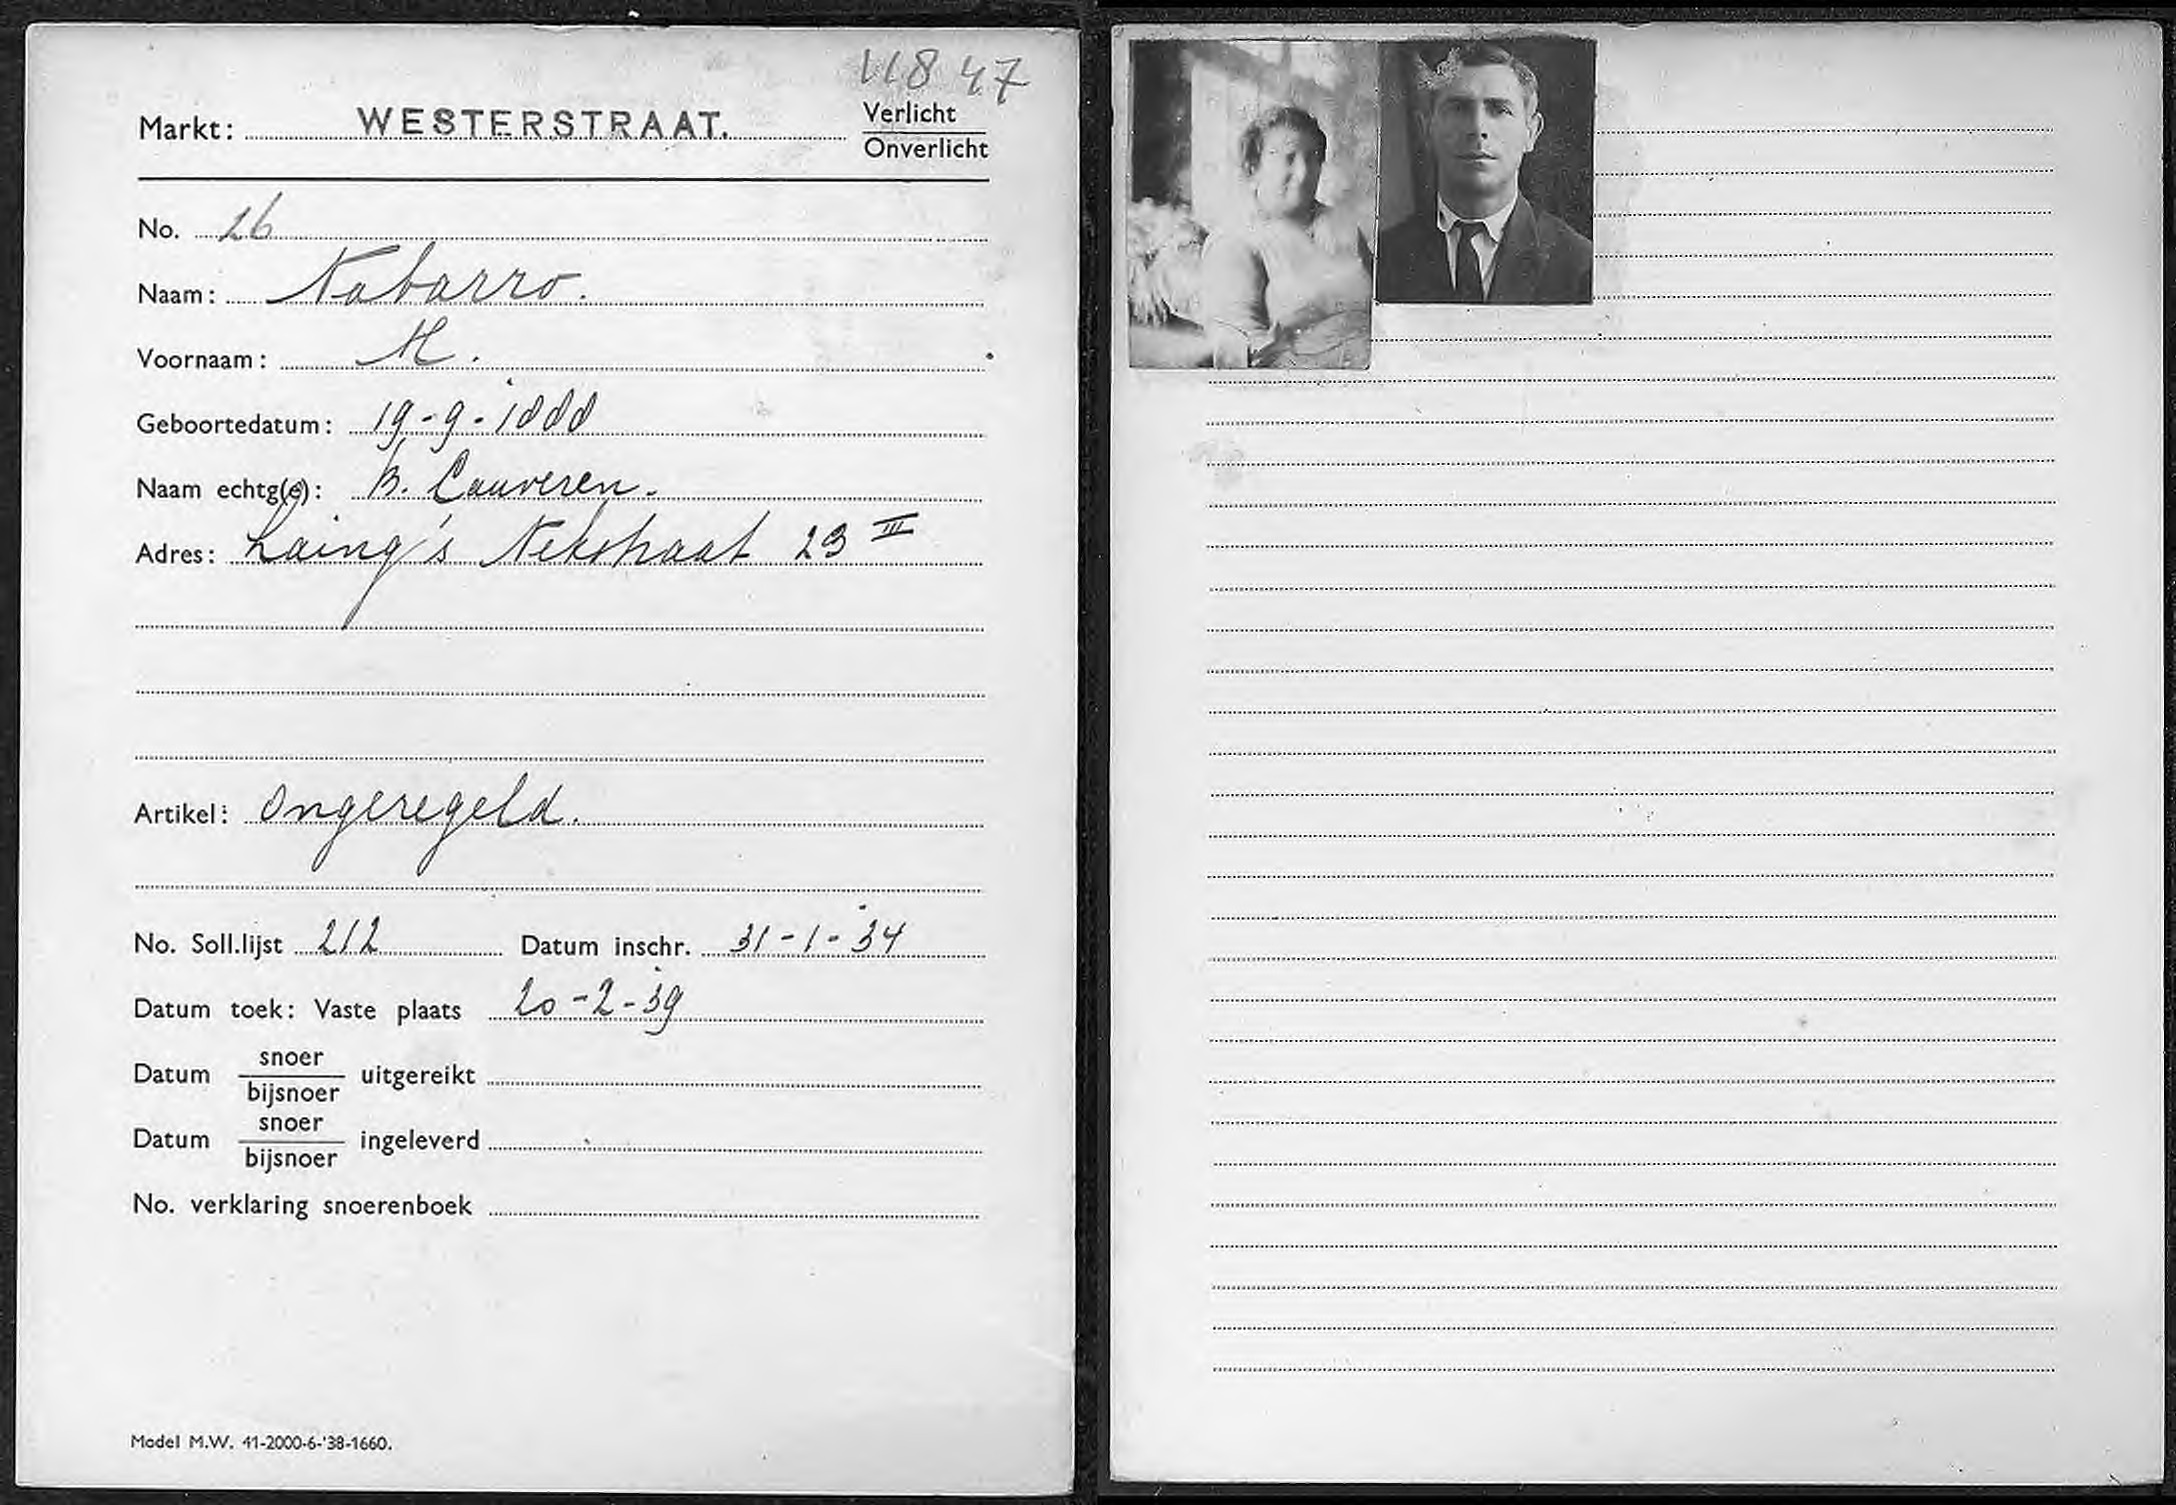 11847
Markt: WESTERSTRAAT. Verlicht
Onverlicht
No. 26
Naam: Nabarro.
Voornaam: M.
Geboortedatum: 19-9-1888
Naam echtg(e): B. Cauveren.
Adres: Laing's Nekstraat 23 III
Artikel: Ongeregeld.
No. Soll.lijst 212 Datum inschr. 31-1-34
Datum toek: Vaste plaats 20-2-39
Datum snoer bijsnoer uitgereikt
Datum snoer bijsnoer ingeleverd
No. verklaring snoerenboek
Model M.W. 41-2000-6-'38-1660.